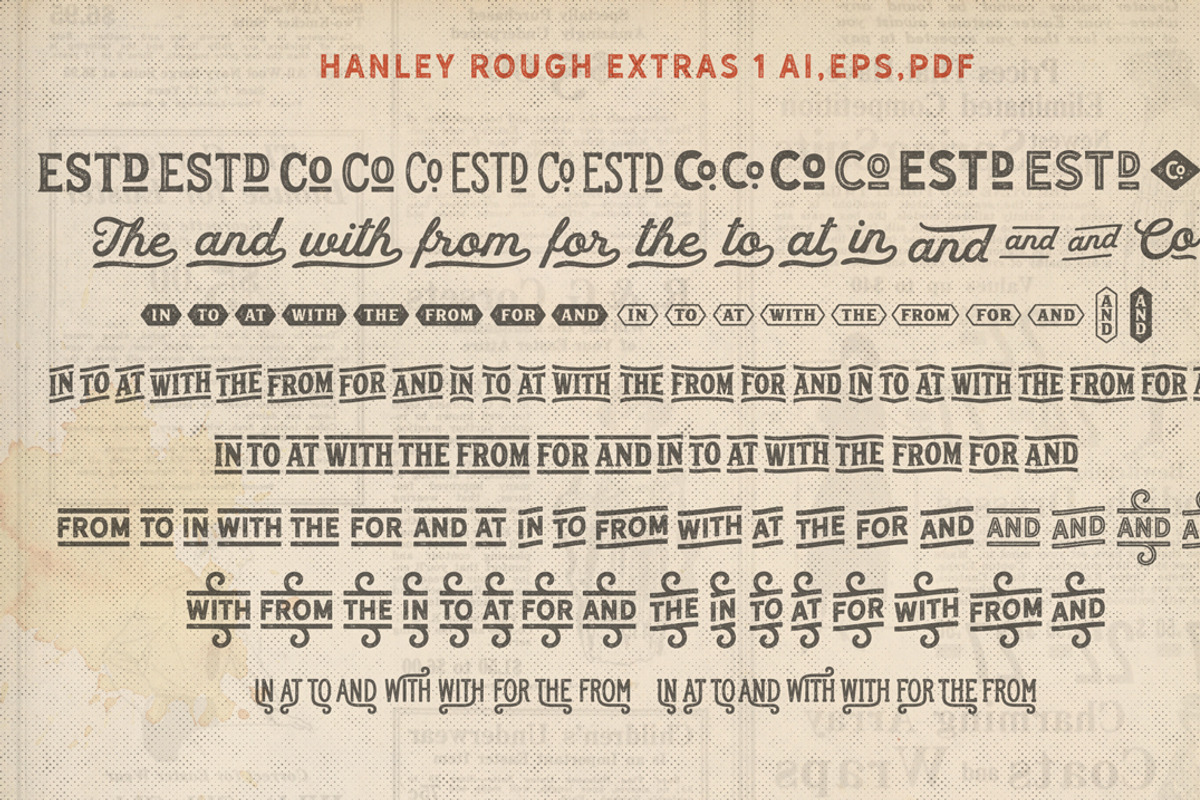 HANLEY ROUGH EXTRAS 1 AI,EPS,PDF
ESTD ESTD Co Co Co ESTD Co ESTD Co Co Co Co ESTD ESTD Co
The and with from for the to at in and and and Co
IN TO AT WITH THE FROM FOR AND IN TO AT WITH THE FROM FOR AND AND AND
IN TO AT WITH THE FROM FOR AND IN TO AT WITH THE FROM FOR AND IN TO AT WITH THE FROM FOR
IN TO AT WITH THE FROM FOR AND IN TO AT WITH THE FROM FOR AND
FROM TO IN WITH THE FOR AND AT IN TO FROM WITH AT THE FOR AND AND AND AND
WITH FROM THE IN TO AT FOR AND THE IN TO AT FOR WITH FROM AND
IN AT TO AND WITH WITH FOR THE FROM IN AT TO AND WITH WITH FOR THE FROM